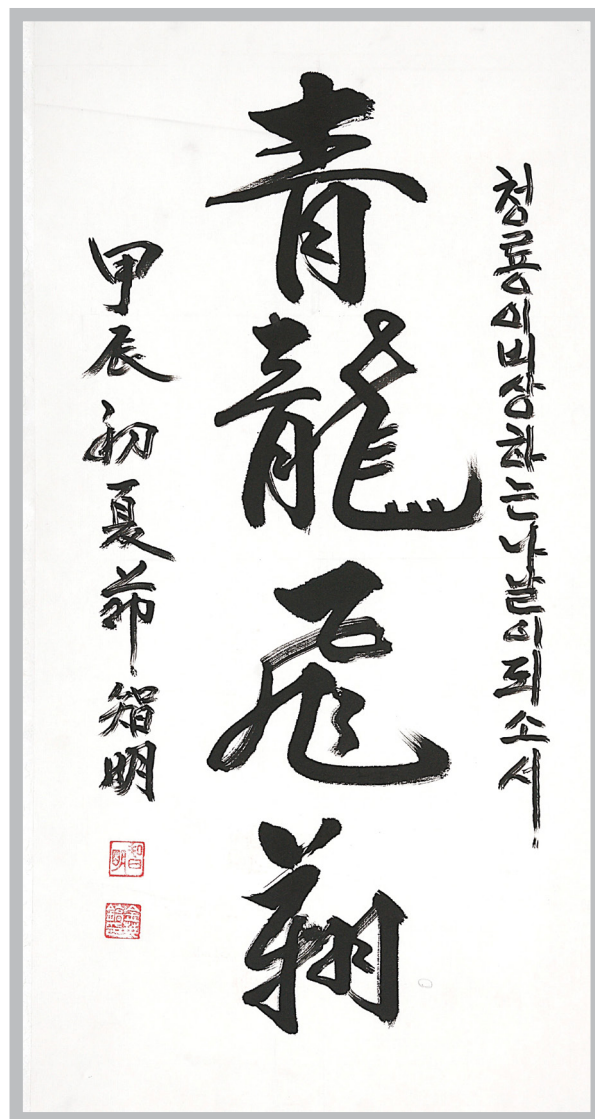 청룡이비상하는나날이되소서
青龍飛翔
甲辰初夏節智明